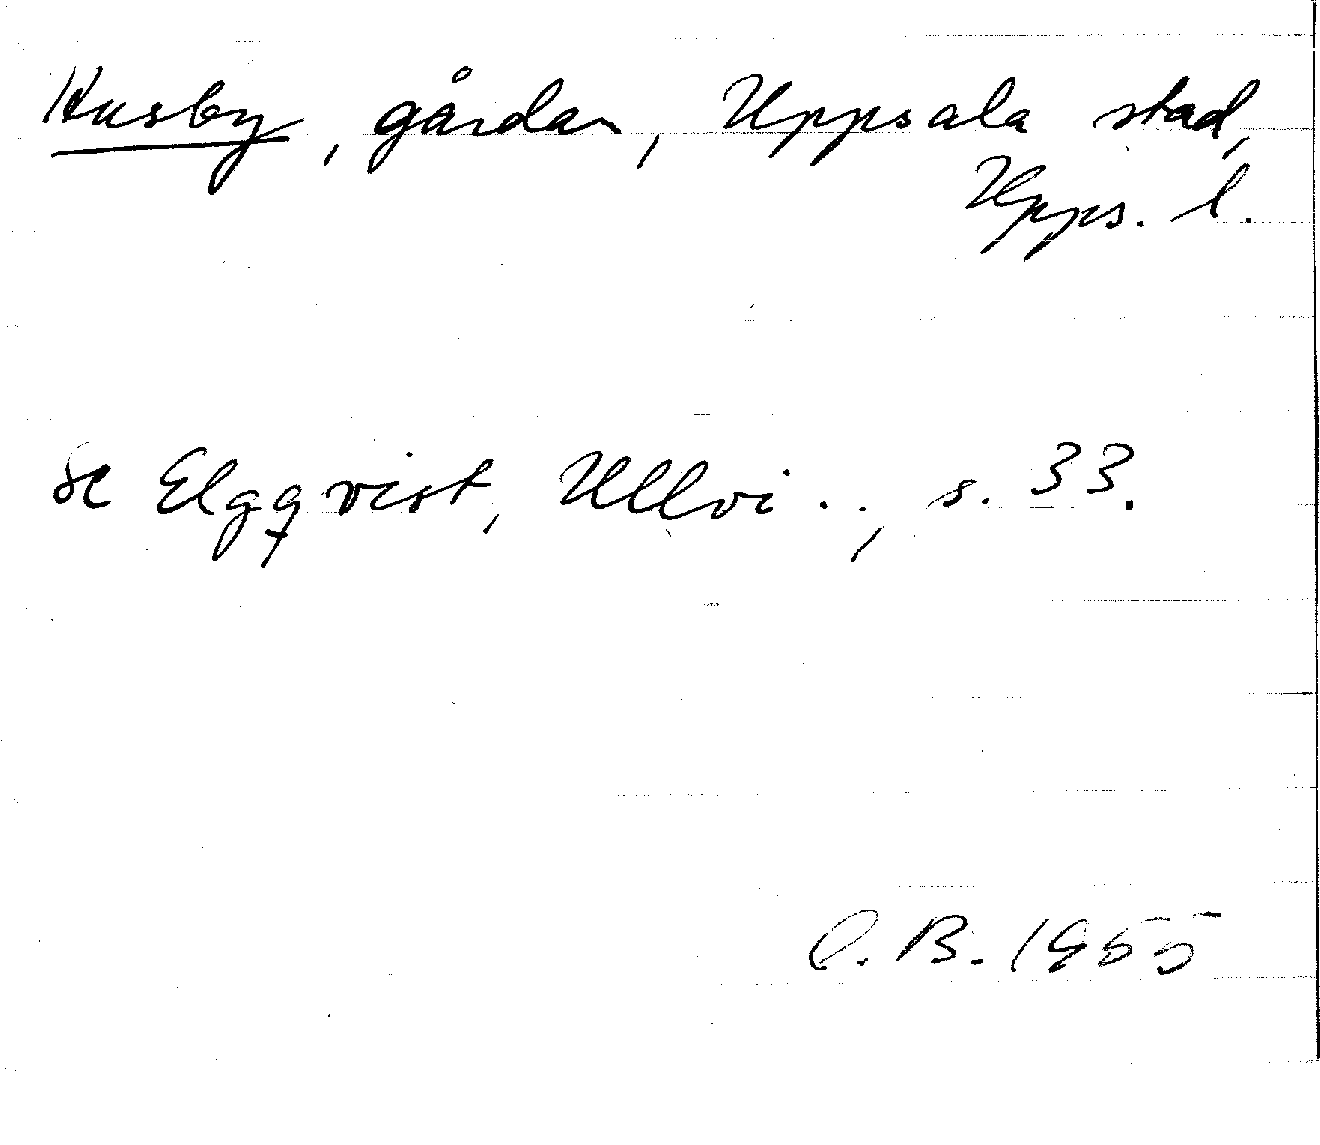 Husby, gårdar, Uppsala stad,
Upps. l.
Se Elgqvist, Ullvi . . , s. 33.
C. B. 1955